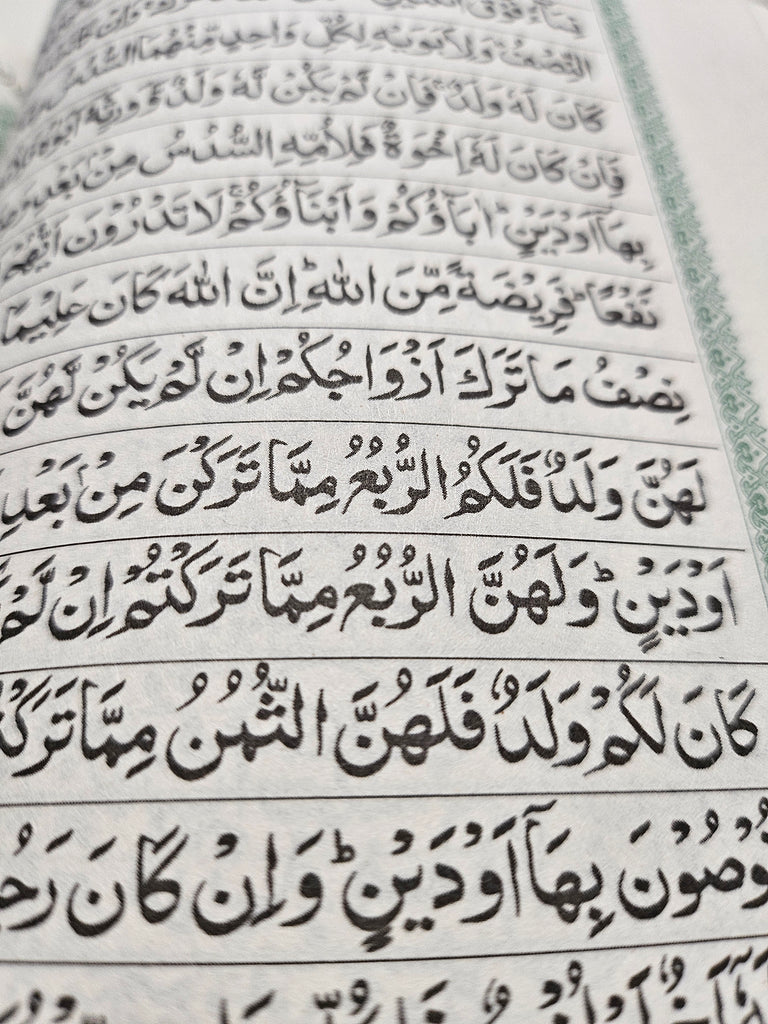 النِّصْفُ ؕ وَلِاَبَوَيْهِ لِكُلِّ وَاحِدٍ مِّنْهُمَا السُّدُسُ
كَانَ لَهٗ وَلَدٌ ۚ فَاِنْ لَّمْ يَكُنْ لَّهٗ وَلَدٌ وَّوَرِثَهٗۤ اَبَوٰهُ
فَاِنْ كَانَ لَهٗۤ اِخْوَةٌ فَلِاُمِّهِ السُّدُسُ مِنْۢ بَعْدِ
بِهَاۤ اَوْ دَيْنٍ ؕ اٰبَآؤُكُمْ وَاَبْنَآؤُكُمْ ۚ لَا تَدْرُوْنَ اَيُّهُمْ
نَفْعًا ؕ فَرِيْضَةً مِّنَ اللّٰهِ ؕ اِنَّ اللّٰهَ كَانَ عَلِيْمًا
نِصْفُ مَا تَرَكَ اَزْوَاجُكُمْ اِنْ لَّمْ يَكُنْ لَّهُنَّ
لَهُنَّ وَلَدٌ فَلَكُمُ الرُّبُعُ مِمَّا تَرَكْنَ مِنْۢ بَعْدِ
اَوْ دَيْنٍ ؕ وَلَهُنَّ الرُّبُعُ مِمَّا تَرَكْتُمْ اِنْ لَّمْ
كَانَ لَكُمْ وَلَدٌ فَلَهُنَّ الثُّمُنُ مِمَّا
تُوْصُوْنَ بِهَاۤ اَوْ دَيْنٍ ؕ وَاِنْ كَانَ